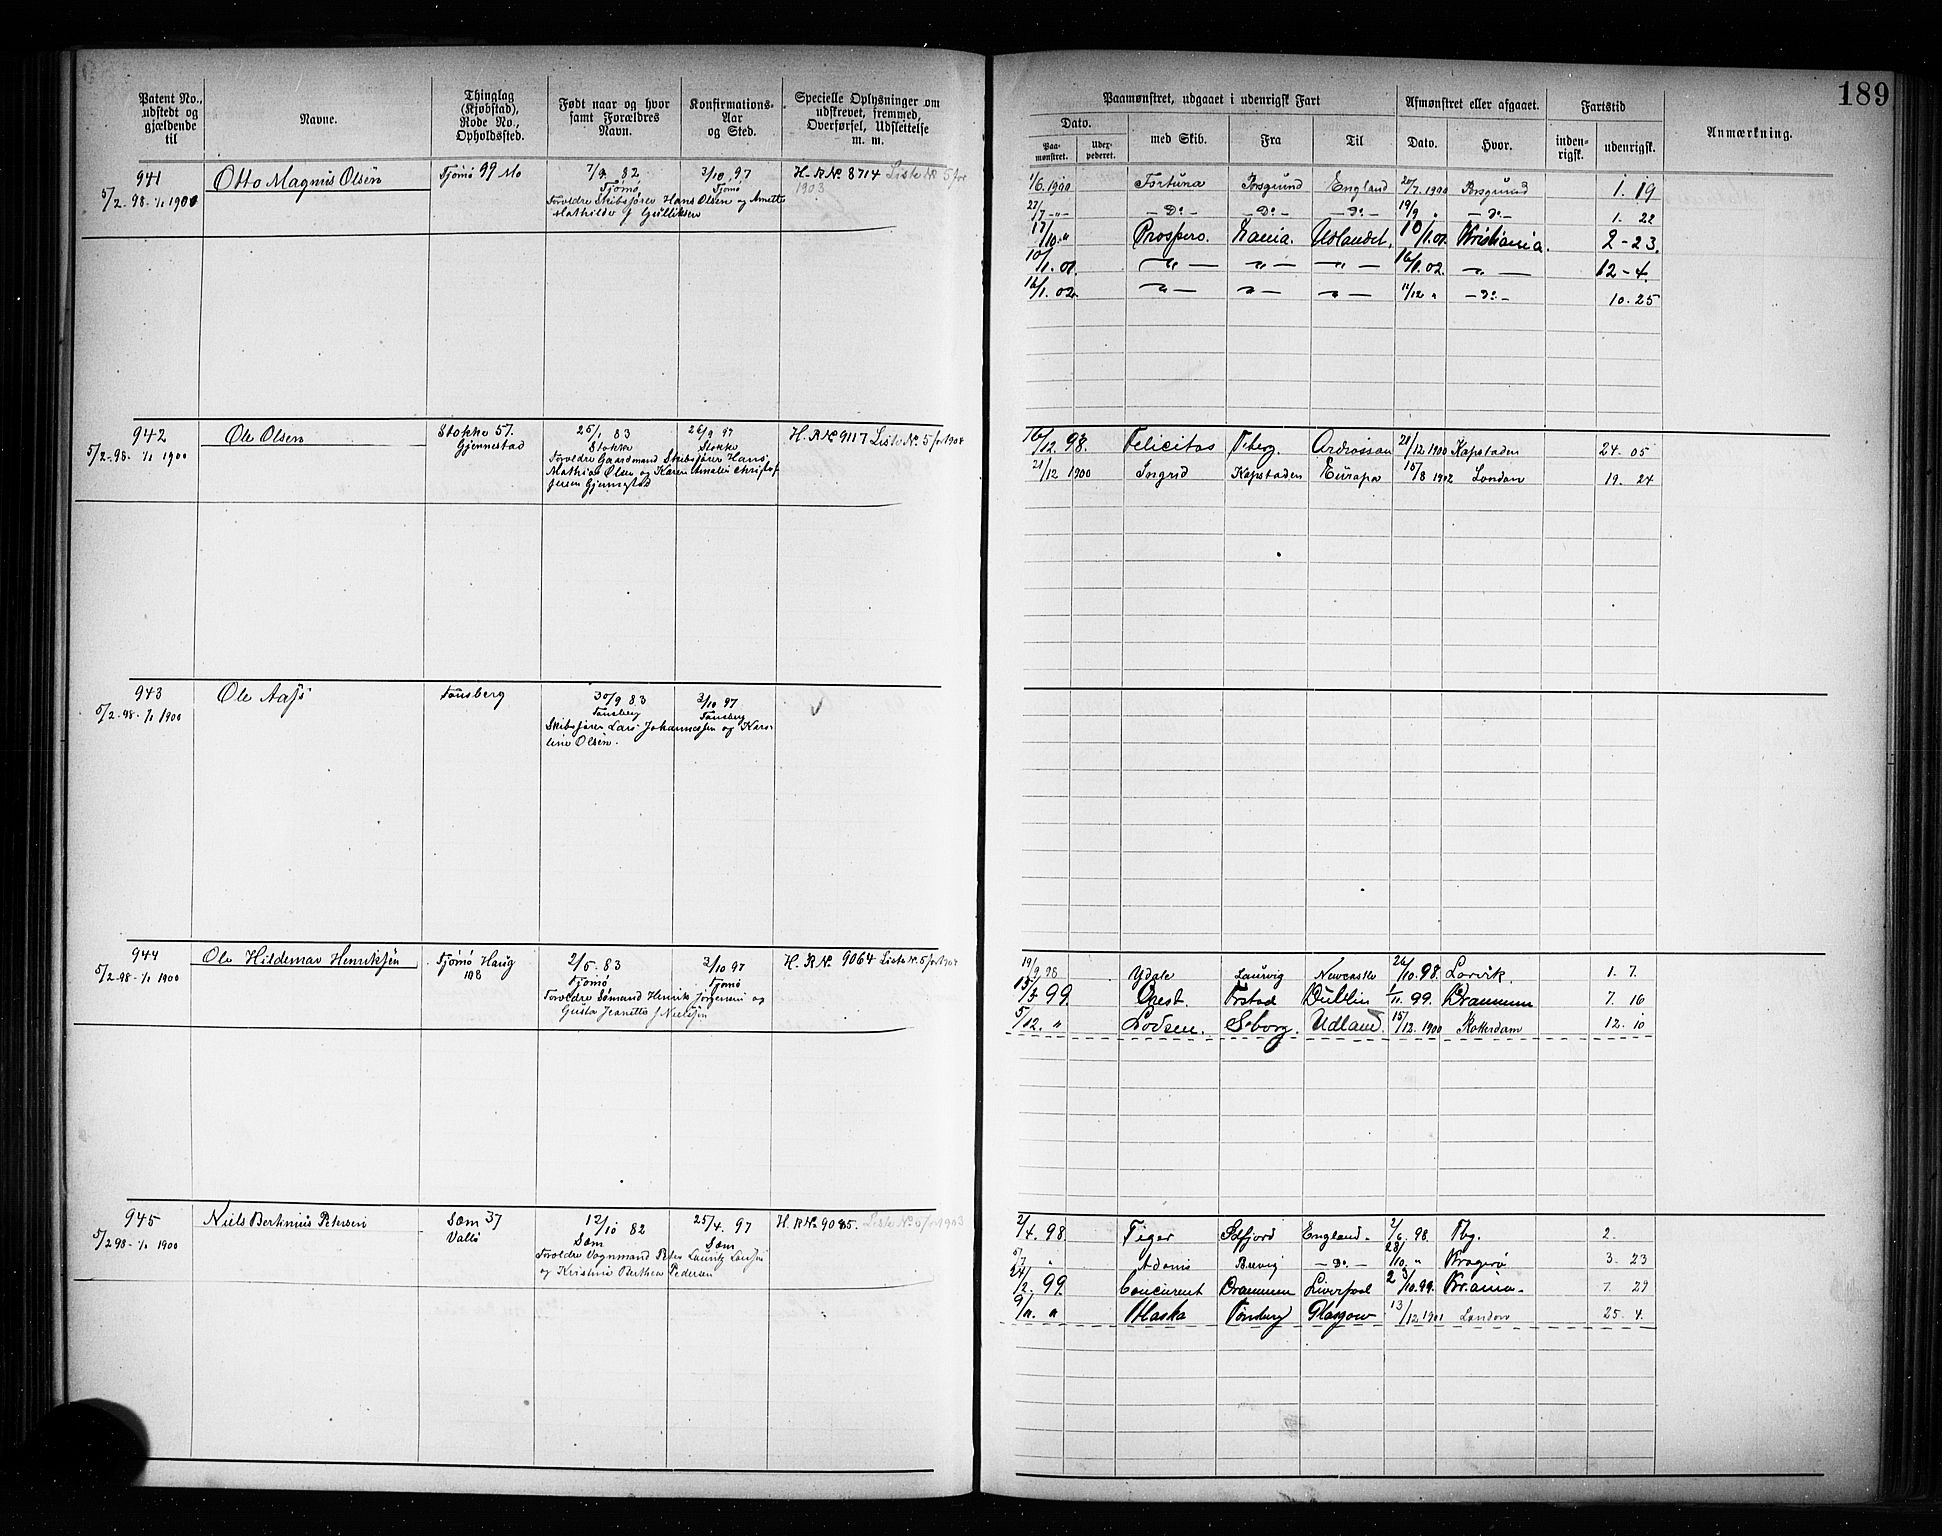 189
Patent No., udstedt og gjældende til
Navne.
Thinglag (Kjøbstad), Rode No., Opholdssted.
Født naar og hvor samt Forældres Navn.
Konfirmations-Aar og Sted.
Specielle Oplysninger om udskrevet, fremmed, Overførsel, Udslettelse m. m.
Paamønstret, udgaaet i udenrigsk Fart
Afmønstret eller afgaaet.
Fartstid
Anmærkning.
Dato.
med Skib.
Fra
Til
Dato.
Hvor.
inden-rigsk.
udenrigsk.
Paa-mønstret.
Udex-pederet.
941
5/2-98-1/1 1900
Otto Magnus Olsen
Tjømø 99 Mo
7/9 82
Tjømø
Forældre Skibsfører Hans Olsen og Anette
Mathilde f Gulliksen
3/10 97
Tjømø
H. R No 8714 Liste No 5 for
1903
1/6.1900 Fortuna Porsgrund England 20/7 1900 Porsgrund 1. 19
27/7 -"- - Do - - Do - - Do - 19/9 " - Do - 1. 22
17/10 " Prospero. Udlandet. 10/1.01. Kristiania. 2-23.
10/1.01. - " - - " - - " - 16/1.02. - " - 12-4.
16/1.02. - " - - " - - " - 11/12 " - Do - 10.25
942
5/2-98-1/1 1900
Ole Olsen
Stokke 57.
Gjennestad
25/1 83
Stokke
Forældre Gaardmand Skibsfører Hans
Mathias Olsen og Karen Amalie Christof
fersen Gjennestad
26/9 97
Stokke
H. R No 9117 Liste No. 5 for 1904
16/12.98. Felicitas T.berg. Ardrossan 21/12 1900 Kapstaden 24. 05
21/12 1900 Ingrid Kapstaden Europa 15/8 1902 London 19. 24
943
5/2-98-1/1 1900
Ole Aass
Tønsberg
30/9 83
Tønsberg
Skibsfører Lars Johannessen og Karo-
line Olsen.
3/10 97
Tønsberg
944
5/2-98-1/1 1900
Ole Hildemar Henriksen
Tjømø Haug
108
2/5. 83
Tjømø
Forældre Sømand Henrik Jørgensen og
Gusta Jeanette f Nielsen
3/10 97
Tjømø
H. R No. 9064 Liste No. 5 for 1904
19/9 98 Ydale Laurvig Newcastle 26/10.98. Larvik. 1. 7.
15/3 99. Quest. F.stad Dublin 1/11.99. Drammen 7. 16
5/12. " Lodsen. S.borg. Udland. 15/12.1900 Rotterdam 12. 10
945
5/2 98-1/1 1900
Niels Bertinius Petersen
Sæm 37
Vallø
12/10 82
Sæm
Forældre Vognmand Peter Lauritz Larsen
og Kristine Berthea Pedersen
25/4. 97
Sæm
H. R No. 9085. Liste No 5 for 1903
2/4.98 Tiger England. 2/6.98. Tbg. 2.
5/7 " Adonis Brevig - Do - 28/10. " Kragerø 3. 23
24/2.99. Concurent Drammen Liverpool 23/10.99. Kr.ania. 7. 29
9/11. " Alaska Tønsberg Glasgow 13/12.1901 London 25. 4.